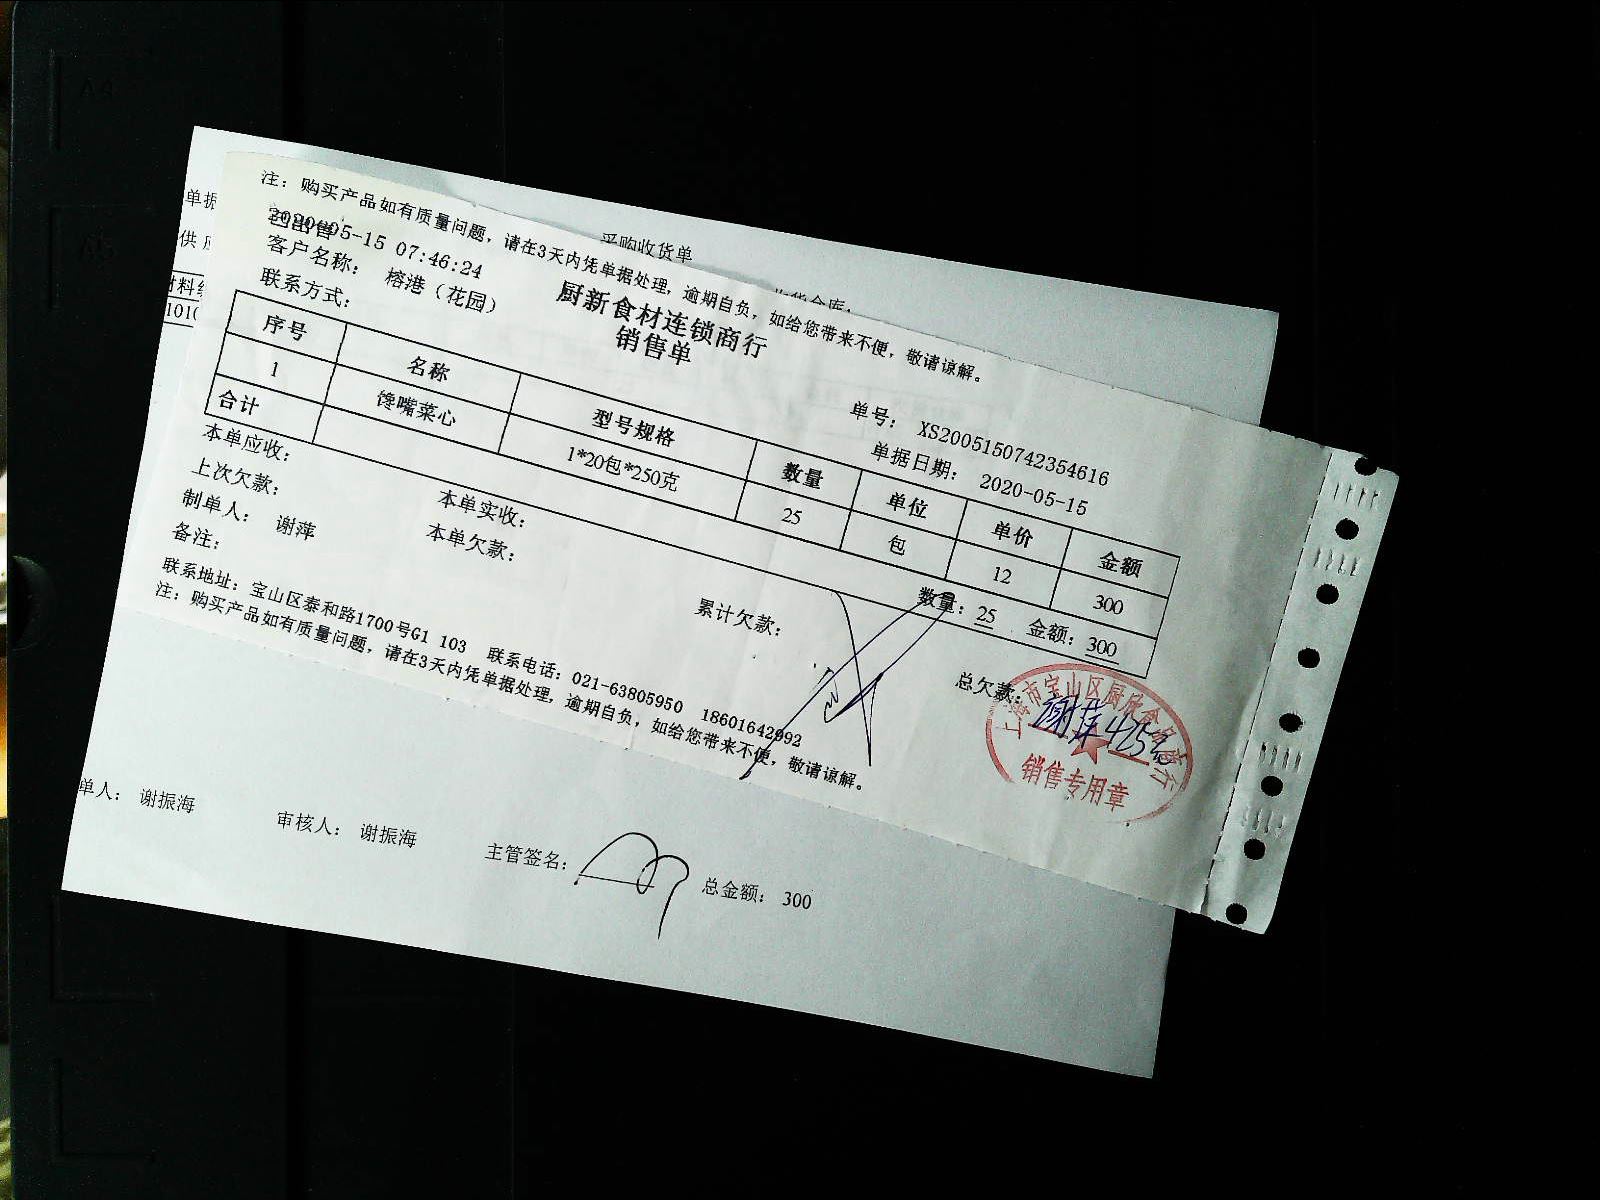 采购收货单
单据
供
材料
1010
注：购买产品如有质量问题，请在3天内凭单据处理，逾期自负，如给您带来不便，敬请谅解。
已出售
2020-05-15 07:46:24
厨新食材连锁商行
销售单
客户名称： 榕港（花园）
单号： XS2005150742354616
联系方式：
单据日期： 2020-05-15
序号 名称 型号规格 数量 单位 单价 金额
1 馋嘴菜心 1*20包*250克 25 包 12 300
合计 数量：25 金额：300
本单应收： 本单实收： 累计欠款： 总欠款：
上次欠款： 本单欠款：
制单人： 谢萍
备注：
联系地址：宝山区泰和路1700号G1 103 联系电话：021-63805950 18601642992
注：购买产品如有质量问题，请在3天内凭单据处理，逾期自负，如给您带来不便，敬请谅解。
上海市宝山区厨欣食品商行
谢萍
销售专用章
单人： 谢振海 审核人： 谢振海 主管签名： 总金额： 300